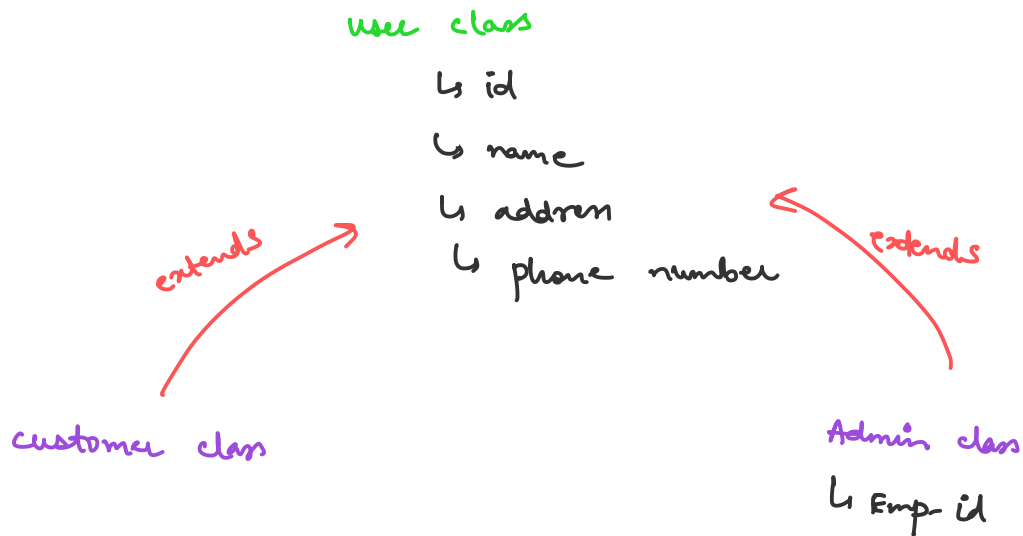 user class
↳ id
↳ name
↳ address
↳ phone number
extends
extends
customer class
Admin class
↳ Emp-id